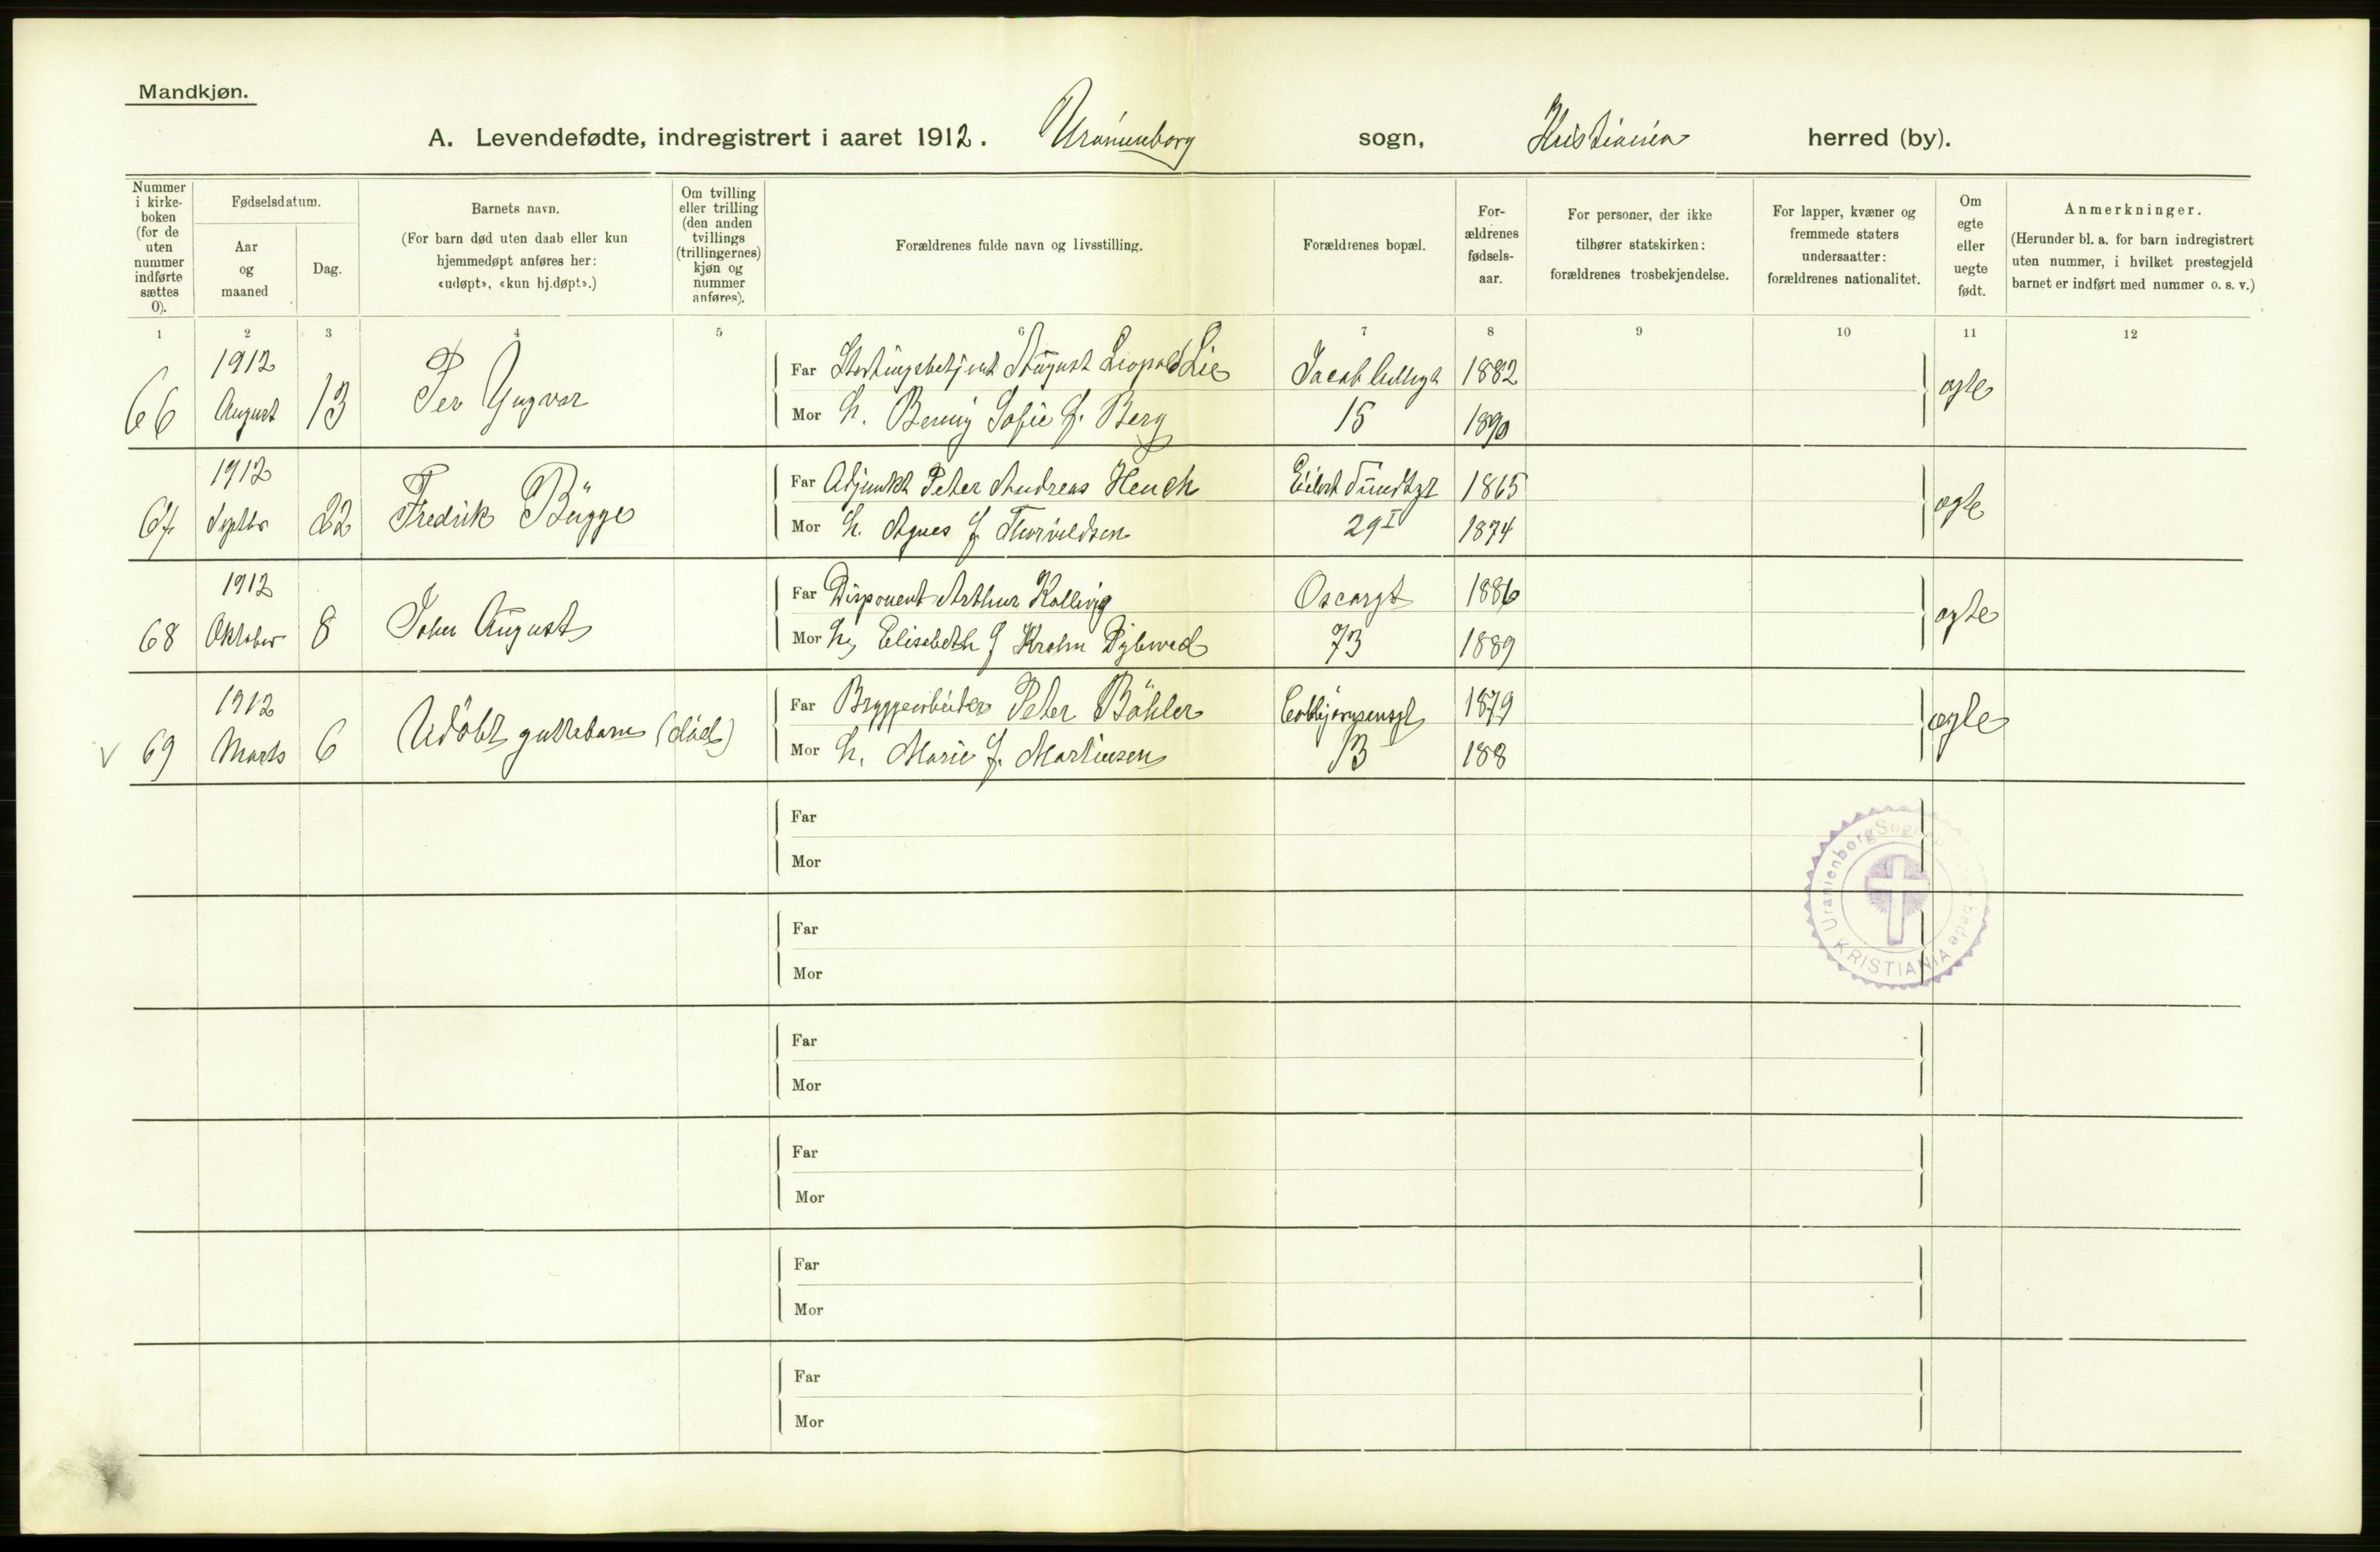 Mandkjøn.
A. Levendefødte, indregistrert i aaret 1912. Uranienborg sogn, Kristiania herred (by).
Nummer i kirke-boken (for de uten nummer indførte sættes 0).
Fødselsdatum.
Aar og maaned
Dag.
Barnets navn.
(For barn død uten daab eller kun hjemmedøpt anføres her: «udøpt», «kun hj.døpt».)
Om tvilling eller trilling (den anden tvillings (trillingernes) kjøn og nummer anføres).
Forældrenes fulde navn og livsstilling.
Forældrenes bopæl.
For-ældrenes fødsels-aar.
For personer, der ikke tilhører statskirken: forældrenes trosbekjendelse.
For lapper, kvæner og fremmede staters undersaatter: forældrenes nationalitet.
Om egte eller uegte født.
Anmerkninger.
(Herunder bl. a. for barn indregistrert uten nummer, i hvilket prestegjeld barnet er indført med nummer o. s. v.)
1 2 3 4 5 6 7 8 9 10 11 12
66 1912 August 13 Per Yngvar
Far Stortingsbetjent August Leopold Lie Jacob Aallsgt 1882 ægte
Mor h. Benny Sofie f. Berg 15 1890
67 1912 Septbr 22 Fredrik Bugge
Far Adjunkt Peter Andreas Heuch Eilert Sundtgt 1865 ægte
Mor h. Agnes f Thorvaldsen 29 I 1874
68 1912 Oktober 8 John August
Far Disponent Arthur Kallevig Oscarsgt 1886 ægte
Mor h. Elisabeth f Krohn Dybwad 73 1889
V 69 1912 Marts 6 Udöbt guttebarn (död)
Far Bryggearbeider Peter Böhler Colbjørnsensgt 1879 ægte
Mor h. Marie f. Martinsen 13 188
Far
Mor
Far
Mor
Far
Mor
Far
Mor
Far
Mor
Far
Mor
Uranienborg KRISTIANIA